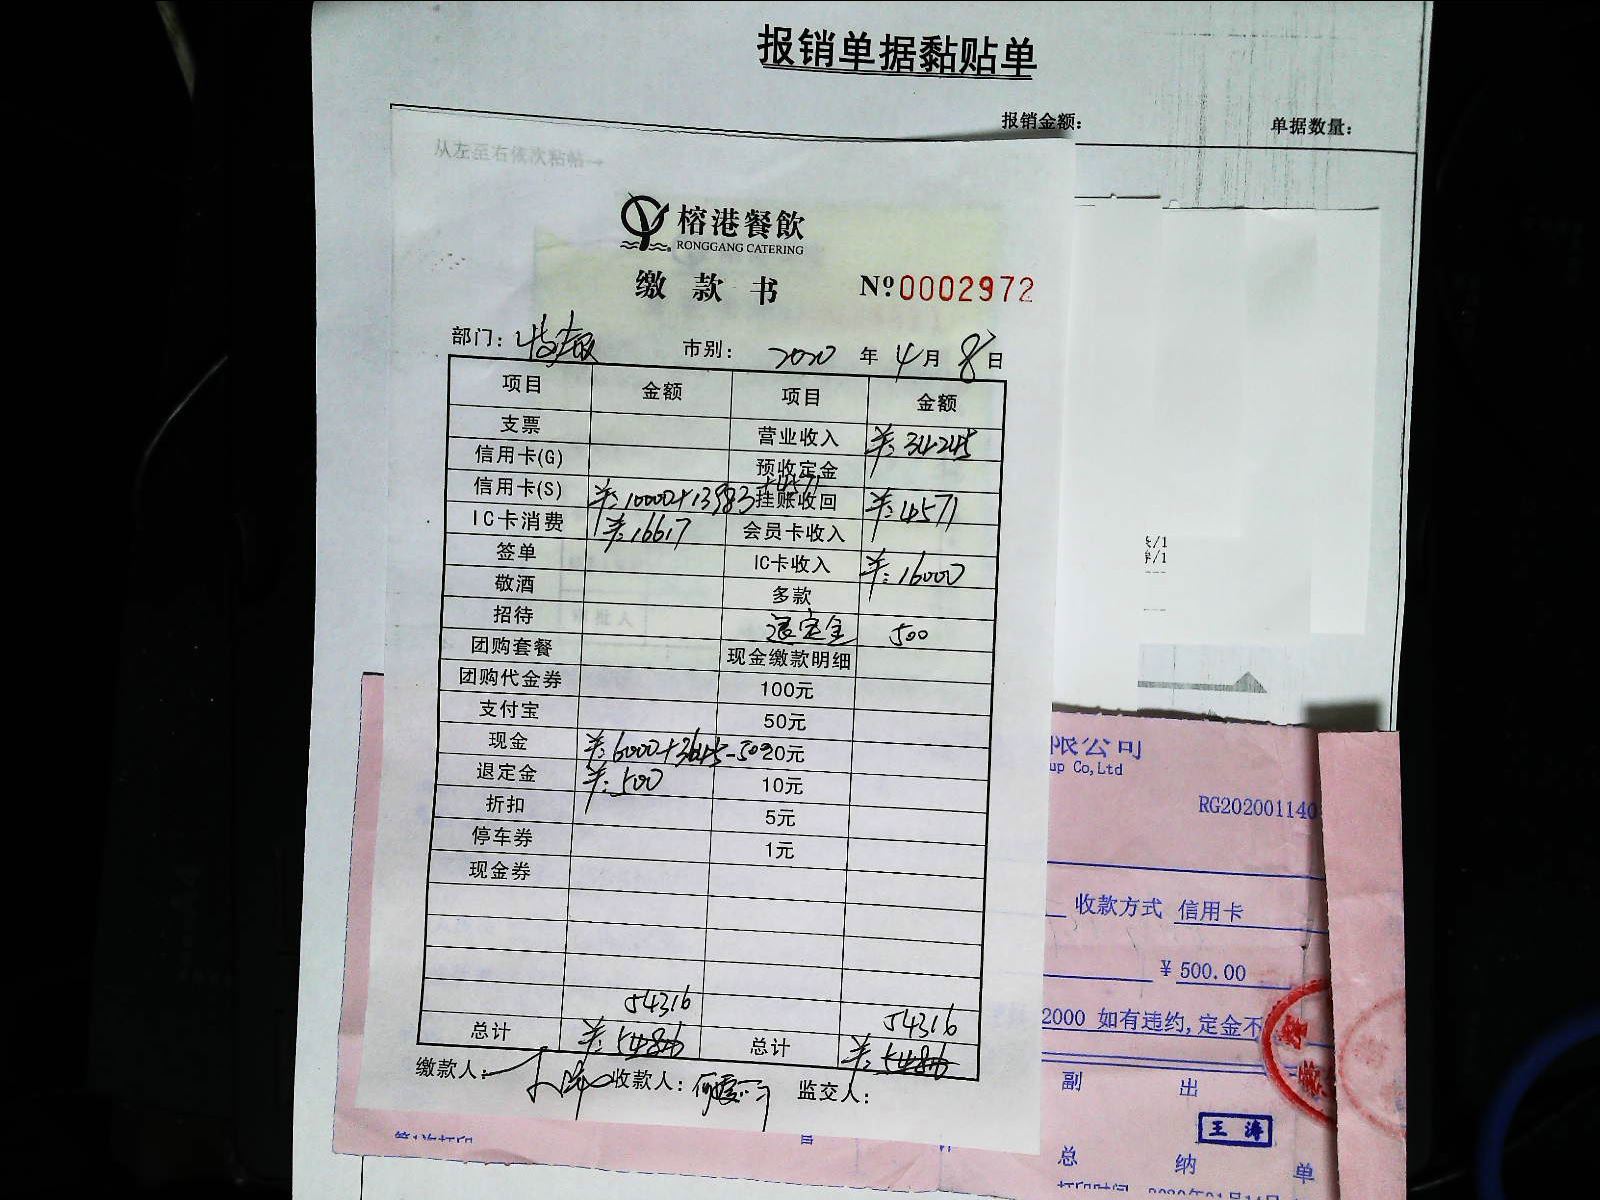 报销单据黏贴单
报销金额： 单据数量：
从左至右依次粘帖→
榕港餐飲
RONGGANG CATERING
缴款书 Nº0002972
部门： 市别： 2020 年 4 月 8 日
项目 金额 项目 金额
支票 营业收入 羊：34245
信用卡(G) 预收定金
信用卡(S) 羊：10000+13983+4571 挂账收回 羊：4571
IC卡消费 羊：16617 会员卡收入
签单 IC卡收入 羊：16000
敬酒 多款
招待 退定金 500
团购套餐 现金缴款明细
团购代金券 100元
支付宝 50元
现金 羊：6000+3645-500 20元
退定金 羊：500 10元
折扣 5元
停车券 1元
现金券
54316 54316
总计 羊：54816 总计 羊：54816
缴款人： 收款人： 监交人：
限公司
up Co,Ltd
RG202001140
收款方式 信用卡
¥500.00
2000 如有违约,定金不
副 出
王海
总 纳 单
第1次打印